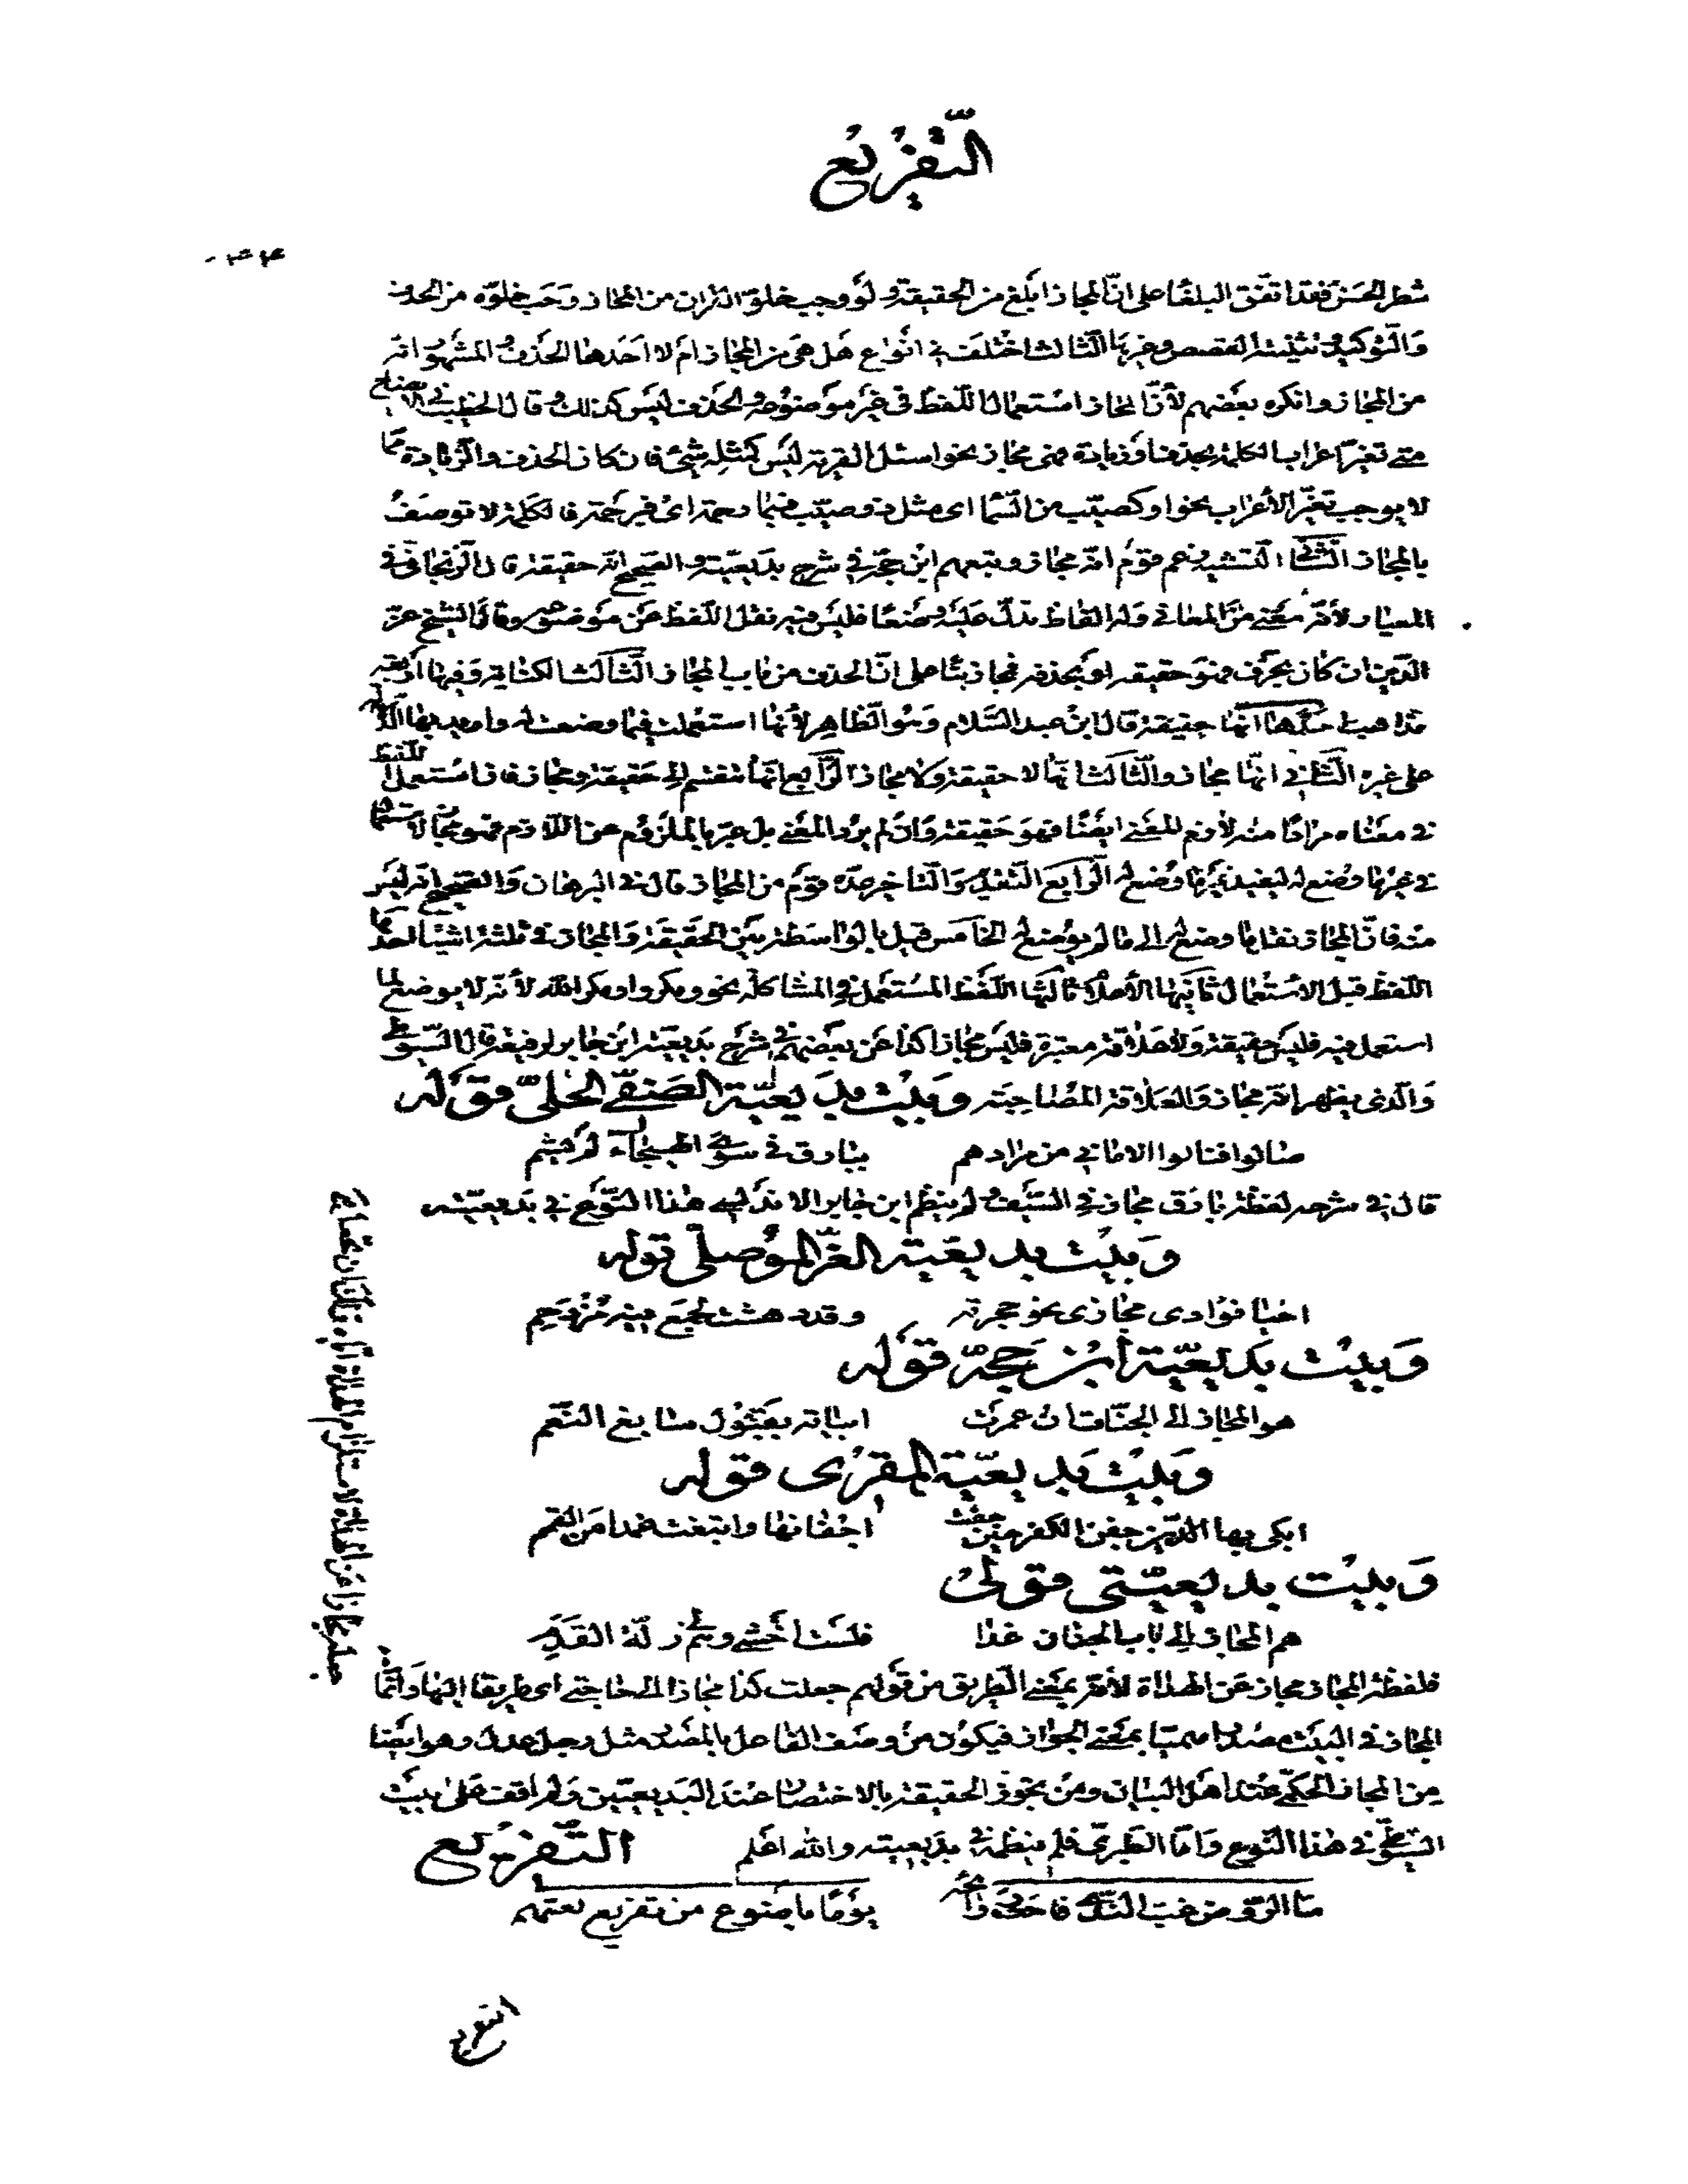 التفريع
شطر الحسن فقد اتفق البلغا على ان المجاز ابلغ من الحقيقة ولو وجب خلو القران من المجاز وجب خلوه من الحذف
والتوكيد وتثنية القصص وغيرها الثالث اختلف في انواع هل هي من المجاز ام لا احدها الحذف المشهور انه
من المجاز وانكره بعضهم لأن المجاز استعمال اللفظ في غير موضوعه والحذف ليس كذلك وقال الخطيب في الايضاح
متى تغير اعراب الكلمة بحذف او زيادة فهي مجاز نحو اسئل القرية ليس كمثله شيئ فان كان الحذف والزيادة مما
لا يوجب تغير الأعراب نحو او كصيب من السما اي مثل ذوي صيب فبما رحمة اي فبرحمة فالكلمة لا توصف
بالمجاز الثاني التشبيه زعم قوم انه مجاز وتبعهم ابن حجة في شرح بديعيته والصحيح انه حقيقة قال الزنجاني في
المعيار لأنه معنى من المعاني وله الفاظ تدل عليه وضعا فليس فيه نقل اللفظ عن موضوعه وقال الشيخ عز
الدين ان كان بحرف فهو حقيقة او بحذفه فمجاز بنا على ان الحذف من باب المجاز الثالث الكناية وفيها اربعة
مذاهب احدها انها حقيقة قال ابن عبد السلام وهو الظاهر لأنها استعملت فيما وضعت له واريد بها الدلالة
على غيره الثاني انها مجاز والثالث انها لا حقيقة ولا مجاز الرابع انها تنقسم الى حقيقة ومجاز فان استعمل اللفظ
في معناه مرادا منه لازم المعنى ايضا فهو حقيقة وان لم يرد المعنى بل عبر بالملزوم عن اللازم فهو مجاز لاستعماله
في غير ما وضع له ليفيد غير ما وضع له الرابع التقديم والتاخير عده قوم من المجاز قال في البرهان والصحيح انه ليس
منه فان المجاز نقل ما وضع له الى ما لم يوضع له الخامس قيل بالواسطة بين الحقيقة والمجاز في ثلثة اشيا احدها
اللفظ قبل الاستعمال ثانيها الأعلام ثالثها اللفظ المستعمل في المشاكلة نحو ومكروا ومكر الله لأنه لا يوضع لما
استعمل فيه فليس حقيقة ولا علاقة معتبرة فليس مجازا كذا عن بعضهم في شرح بديعية ابن جابر لرفيقه قال السيوطي
والذي يظهر انه مجاز والعلاقة المصاحبة وبيت بديعية الصفي الحلي قوله
صالوا فنالوا الاماني من مرادهم ببارق في سوى الهيجاء لم يشم
قال في شرحه لفظة بارق مجاز في السيف ولم ينظم ابن جابر الاندلسي هذا النوع في بديعيته
وبيت بديعية العز الموصلي قوله
احيا فؤادي مجازي نحو حجرته وقد دهشت لجمع فيه مزدحم
وبيت بديعية ابن حجة قوله
هو المجاز الى الجنات ان عمرت ابياته بقبول سابغ النعم
وبيت بديعية المقرى قوله
ابكى بها الدين جفن الكفر حين جفت اجفانها وابتغت غمدا من القمم
وبيت بديعيتي قولي
هم المجاز الى باب الجنان غدا فلست اخشى وهم زلة القدم
فلفظة المجاز مجاز عن الهداة لأنه بمعنى الطريق من قولهم جعلت كذا مجازا الى حاجتي اي طريقا اليها وانما
المجاز في البيت مصدرا ميميا بمعنى الجواز فيكون من وصف الفاعل بالمصدر مثل رجل عدل وهو ايضا
من المجاز الحكمي عند اهل البيان ومن تجوز الحقيقة بالاختصار عند البديعيين ولم اقف على بيت
السيوطي في هذا النوع واما الطبري فلم ينظمه في بديعيته والله اعلم التفريع
ما الروض غب الندى فاحت يوما باضوع من تفريع نعتهم